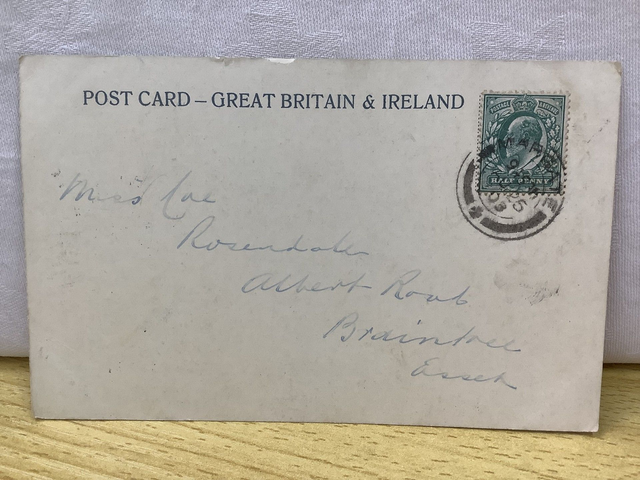 POST CARD – GREAT BRITAIN & IRELAND
POSTAGE REVENUE
HALFPENNY
Miss Coe
Rosendale
Albert Road
Braintree
Essex